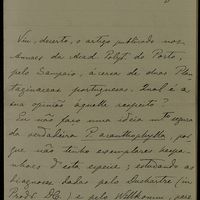 Viu, decerto, o artigo publicado nos
Annaes da Acad. Polyt. do Porto,
pelo Sampaio, ácerca de duas Plan-
tagináceas portuguesas. Qual é a
sua opinião áquelle respeito?
Eu não faço uma idéia mto segura
da verdadeira P. acanthophylla, por
que não tenho exemplares hespa-
nhoes d'esta especie; estudando as
diagnoses dadas pelo Duchartre (in
Prodr. DC.) e pelo Willkomm, pare